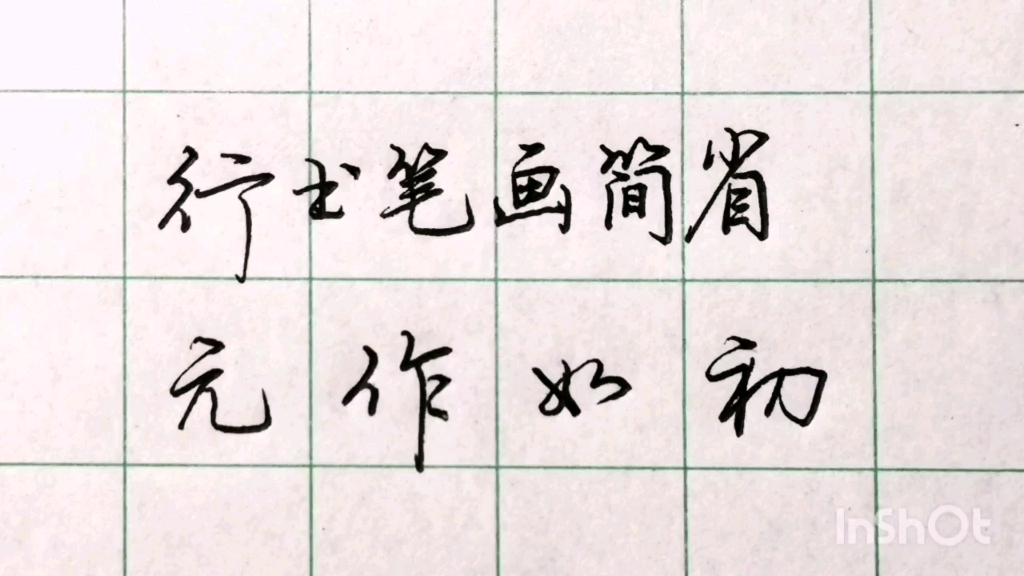 行书笔画简省
元作如初
InShOt